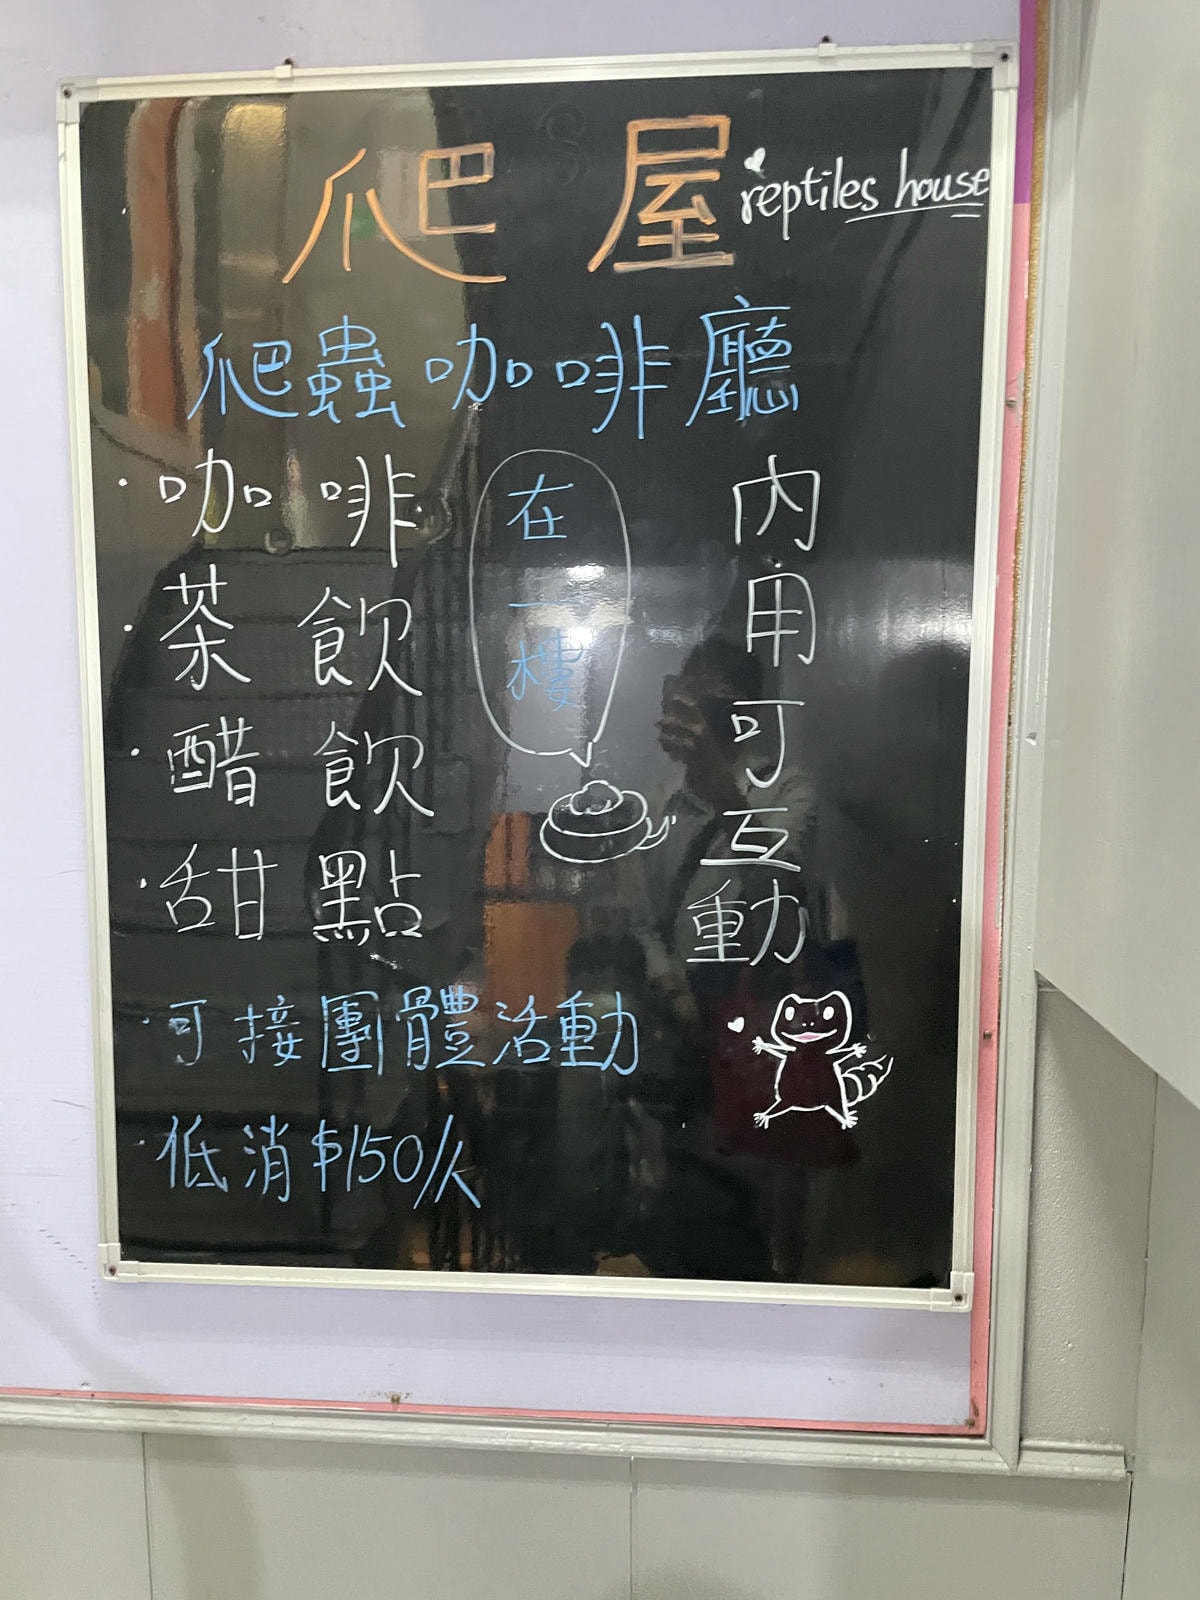 爬屋 reptiles house
爬蟲咖啡廳
·咖啡
·茶飲
·醋飲
·甜點
在一樓
內用可互動
·可接團體活動
·低消$150/人